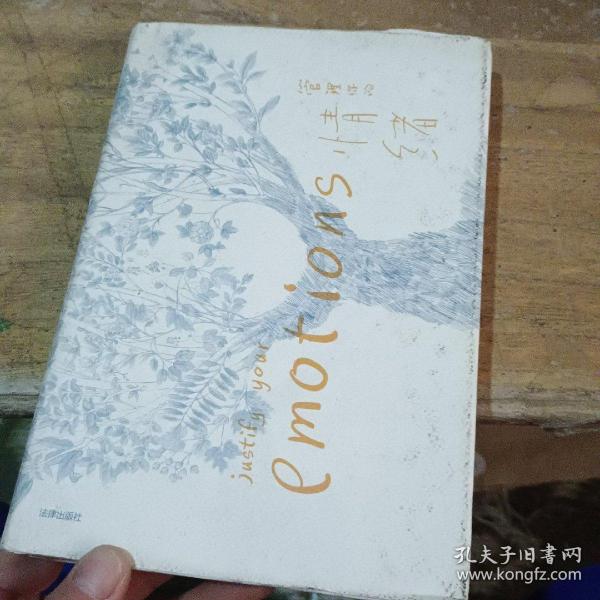 管理好的
情绪
justify your
emotions
法律出版社
孔夫子旧书网
www.kongfz.com